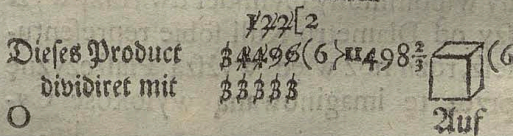 122[2
Dieses Product 34496(6)11498⅔ (6
dividiret mit 33333
O Auf